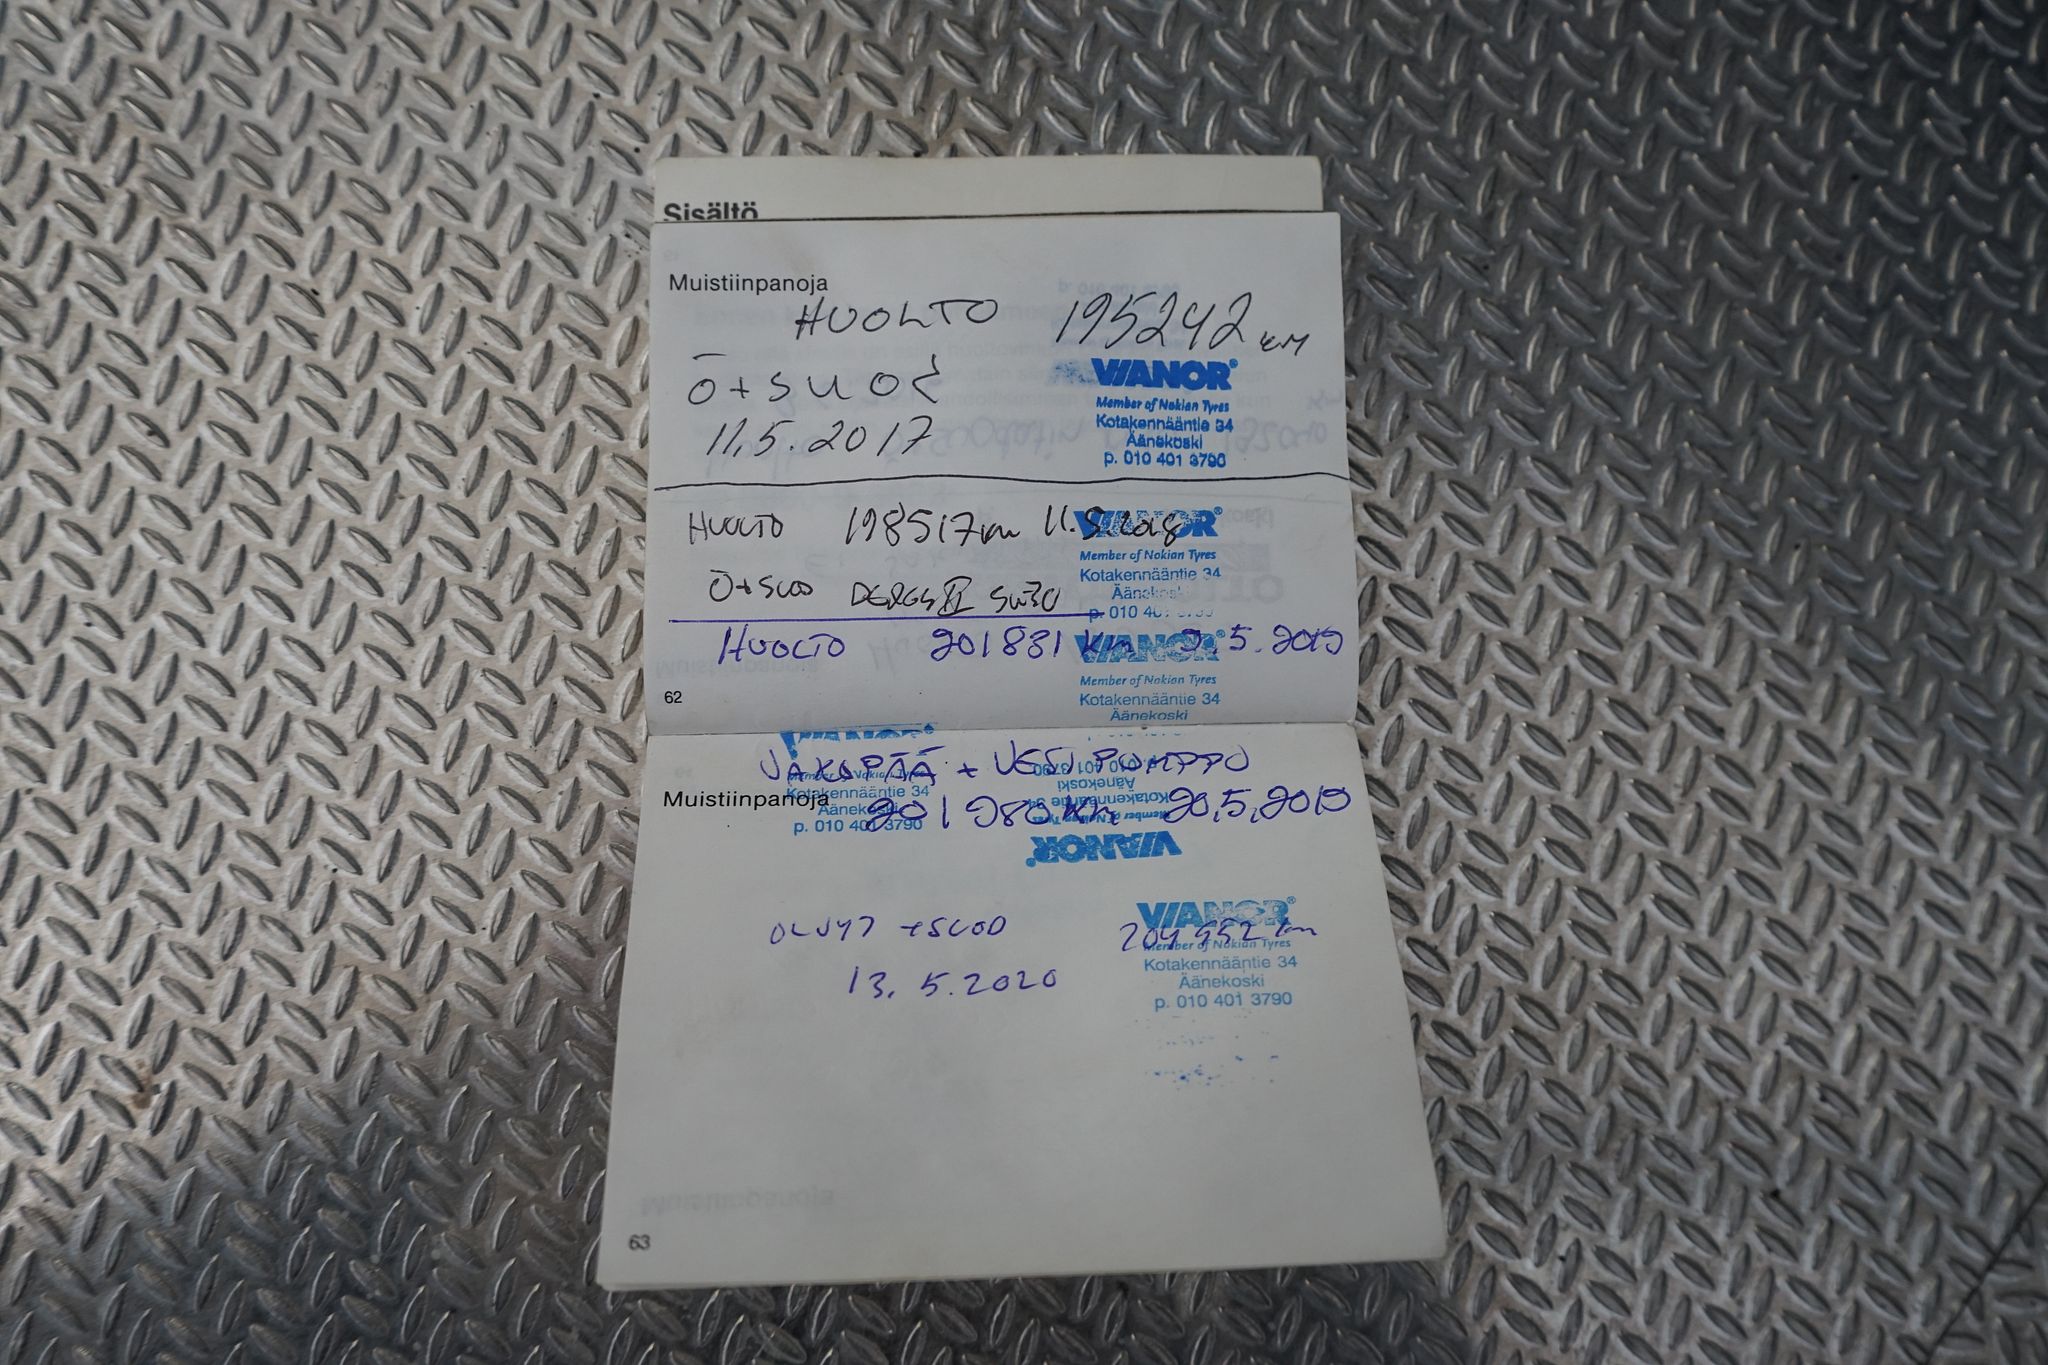 Sisältö
Muistiinpanoja
HUOLTO 195242 KM
Ö+SUOD
11.5.2017
VIANOR®
Member of Nokian Tyres
Kotakennääntie 34
Äänekoski
p. 010 401 3790
HUOLTO 198517km 11.5.2018
VIANOR®
Member of Nokian Tyres
Kotakennääntie 34
Äänekoski
p. 010 401 3790
Ö+SUOD 5W30
HUOLTO 201831 Km 9.5.2019
VIANOR®
Member of Nokian Tyres
Kotakennääntie 34
Äänekoski
62
JAKOPÄÄ + VESIPUMPPU
Muistiinpanoja 201980 Km 20.5.2019
Member of Nokian Tyres
Kotakennääntie 34
Äänekoski
p. 010 401 3790
010 401 3790
Äänekoski
Kotakennääntie 34
Member of Nokian Tyres
VIANOR®
ÖLJYT +SUOD 204952 km
13.5.2020
VIANOR®
Member of Nokian Tyres
Kotakennääntie 34
Äänekoski
p. 010 401 3790
63